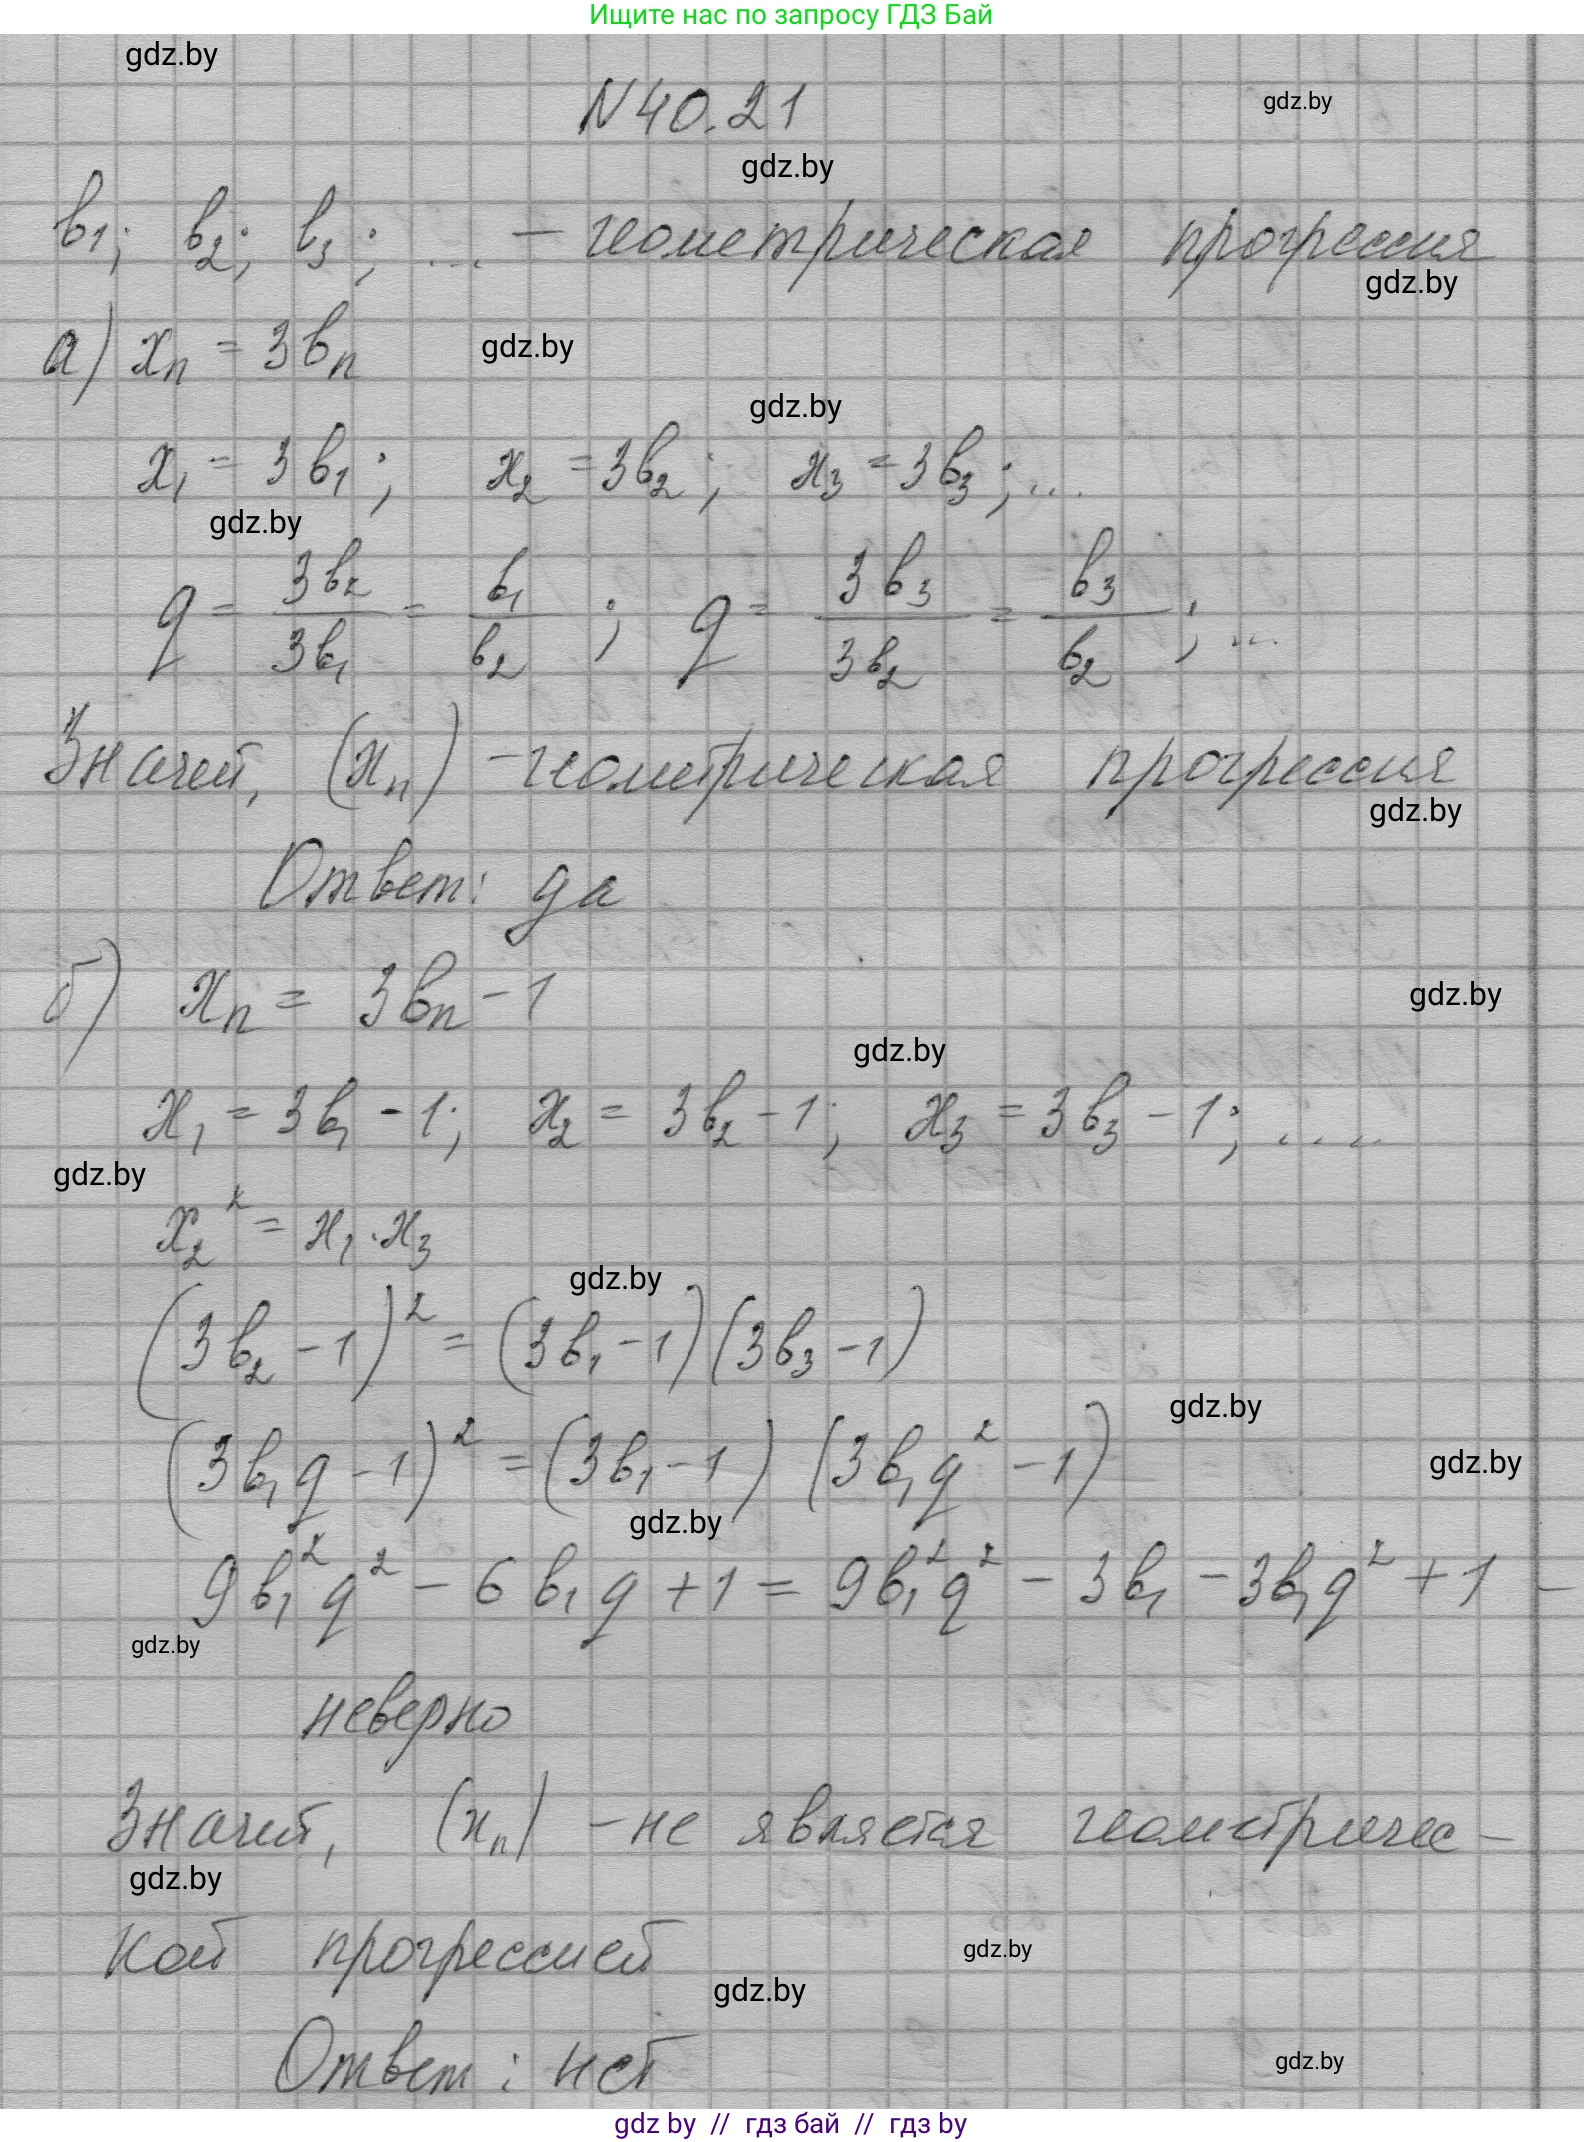 Ищите нас по запросу ГДЗ Бай
gdz.by
N 40.21
gdz.by
gdz.by
b₁; b₂; b₃; ... – геометрическая прогрессия
gdz.by
а) xₙ = 3bₙ
gdz.by
gdz.by
x₁ = 3b₁; x₂ = 3b₂; x₃ = 3b₃; ...
gdz.by
q = 3b₂/3b₁ = b₁/b₂; q = 3b₃/3b₂ = b₃/b₂; ...
Значит, (xₙ) – геометрическая прогрессия
gdz.by
Ответ: да
б) xₙ = 3bₙ – 1
gdz.by
gdz.by
x₁ = 3b₁ – 1; x₂ = 3b₂ – 1; x₃ = 3b₃ – 1; ....
gdz.by
x₂² = x₁·x₃
gdz.by
(3b₂ – 1)² = (3b₁ – 1)(3b₃ – 1)
gdz.by
(3b₁q – 1)² = (3b₁ – 1)(3b₁q² – 1)
gdz.by
gdz.by
9b₁²q² – 6b₁q + 1 = 9b₁²q² – 3b₁ – 3b₁q² + 1 –
gdz.by
неверно
Значит, (xₙ) – не является геометричес–
gdz.by
кой прогрессией
gdz.by
gdz.by
Ответ: нет
gdz.by
gdz by // гдз бай // гдз by